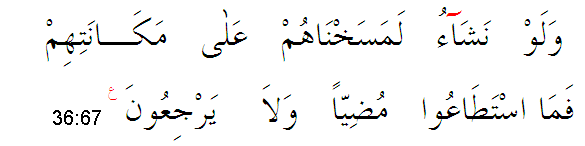 وَلَوْ نَشَآءُ لَمَسَخْنَاهُمْ عَلٰى مَكَـــانَتِهِمْ
فَمَا اسْتَطَاعُوا مُضِيّاً وَلاَ يَرْجِعُونَ ۧ 36:67